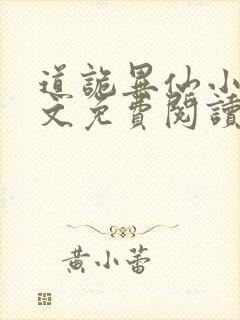 道詭異仙小
文免費閱讀
黄小蕾